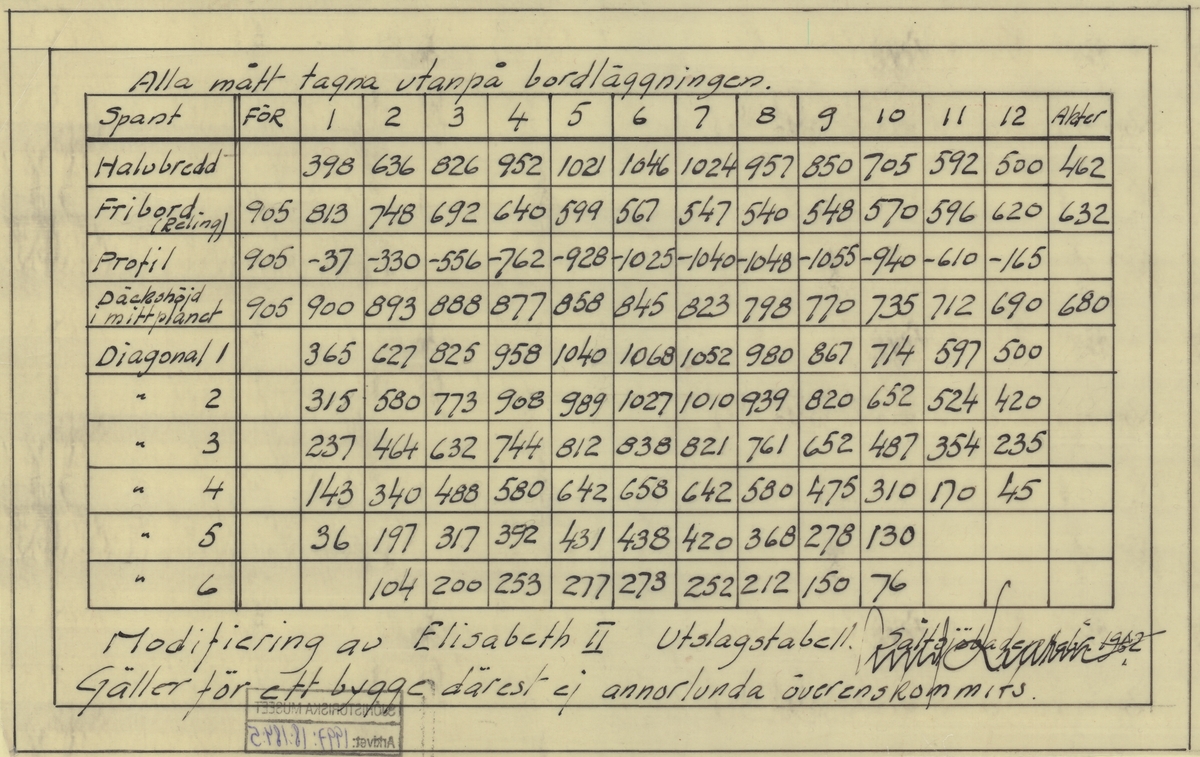 Alla mått tagna utanpå bordläggningen.
Spant FÖR 1 2 3 4 5 6 7 8 9 10 11 12 Akter
Halvbredd 398 636 826 952 1021 1046 1024 957 850 705 592 500 462
Fribord (Reling) 905 813 748 692 640 599 567 547 540 548 570 596 620 632
Profil 905 -37 -330 -556 -762 -928 -1025 -1040 -1048 -1055 -940 -610 -165
Däckshöjd i mittplanet 905 900 893 888 877 858 845 823 798 770 735 712 690 680
Diagonal 1 365 627 825 958 1040 1068 1052 980 867 714 597 500
" 2 315 580 773 908 989 1027 1010 939 820 652 524 420
" 3 237 464 632 744 812 838 821 761 652 487 354 235
" 4 143 340 488 580 642 658 642 580 475 310 170 45
" 5 36 197 317 392 431 438 420 368 278 130
" 6 104 200 253 277 273 252 212 150 76
Modifiering av Elisabeth II Utslagstabell. Saltsjöbaden 1982
Gäller för ett bygge därest ej annorlunda överenskommits.
SJÖHISTORISKA MUSEET
Arkivet: 1997:18:1845